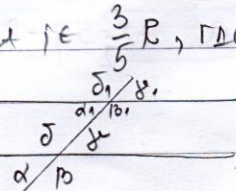 А ј Е 3/5 R, ГДЕ
δ₁ γ₁
α₁ β₁
δ γ
α β